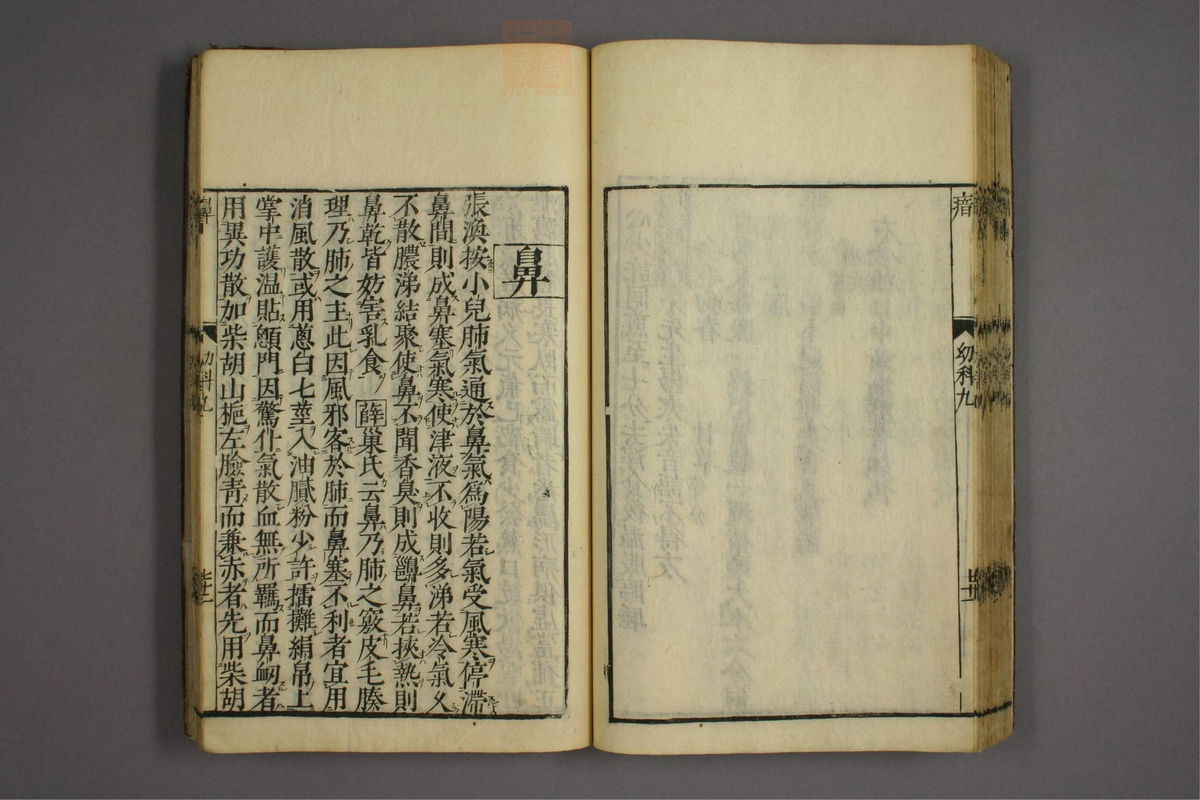 瘖
幼科九
鼻
張渙按小兒肺氣通於鼻氣爲陽若氣受風寒停滯
鼻間則成鼻塞氣寒使津液不收則多涕若冷氣久
不散膿涕結聚使鼻不聞香臭則成齆鼻若挾熱則
鼻乾皆妨害乳食 薛 巢氏云鼻乃肺之竅皮毛腠
理乃肺之主此因風邪客於肺而鼻塞不利者宜用
消風散或用蔥白七莖入油膩粉少許擂攤絹帛上
掌中護温貼顖門因驚仆氣散血無所羈而鼻衂者
用異功散加柴胡山梔左臉青而兼赤者先用柴胡
鼻
幼科九